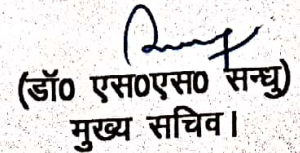 (डॉ0 एस0एस0 सन्धु)
मुख्य सचिव।